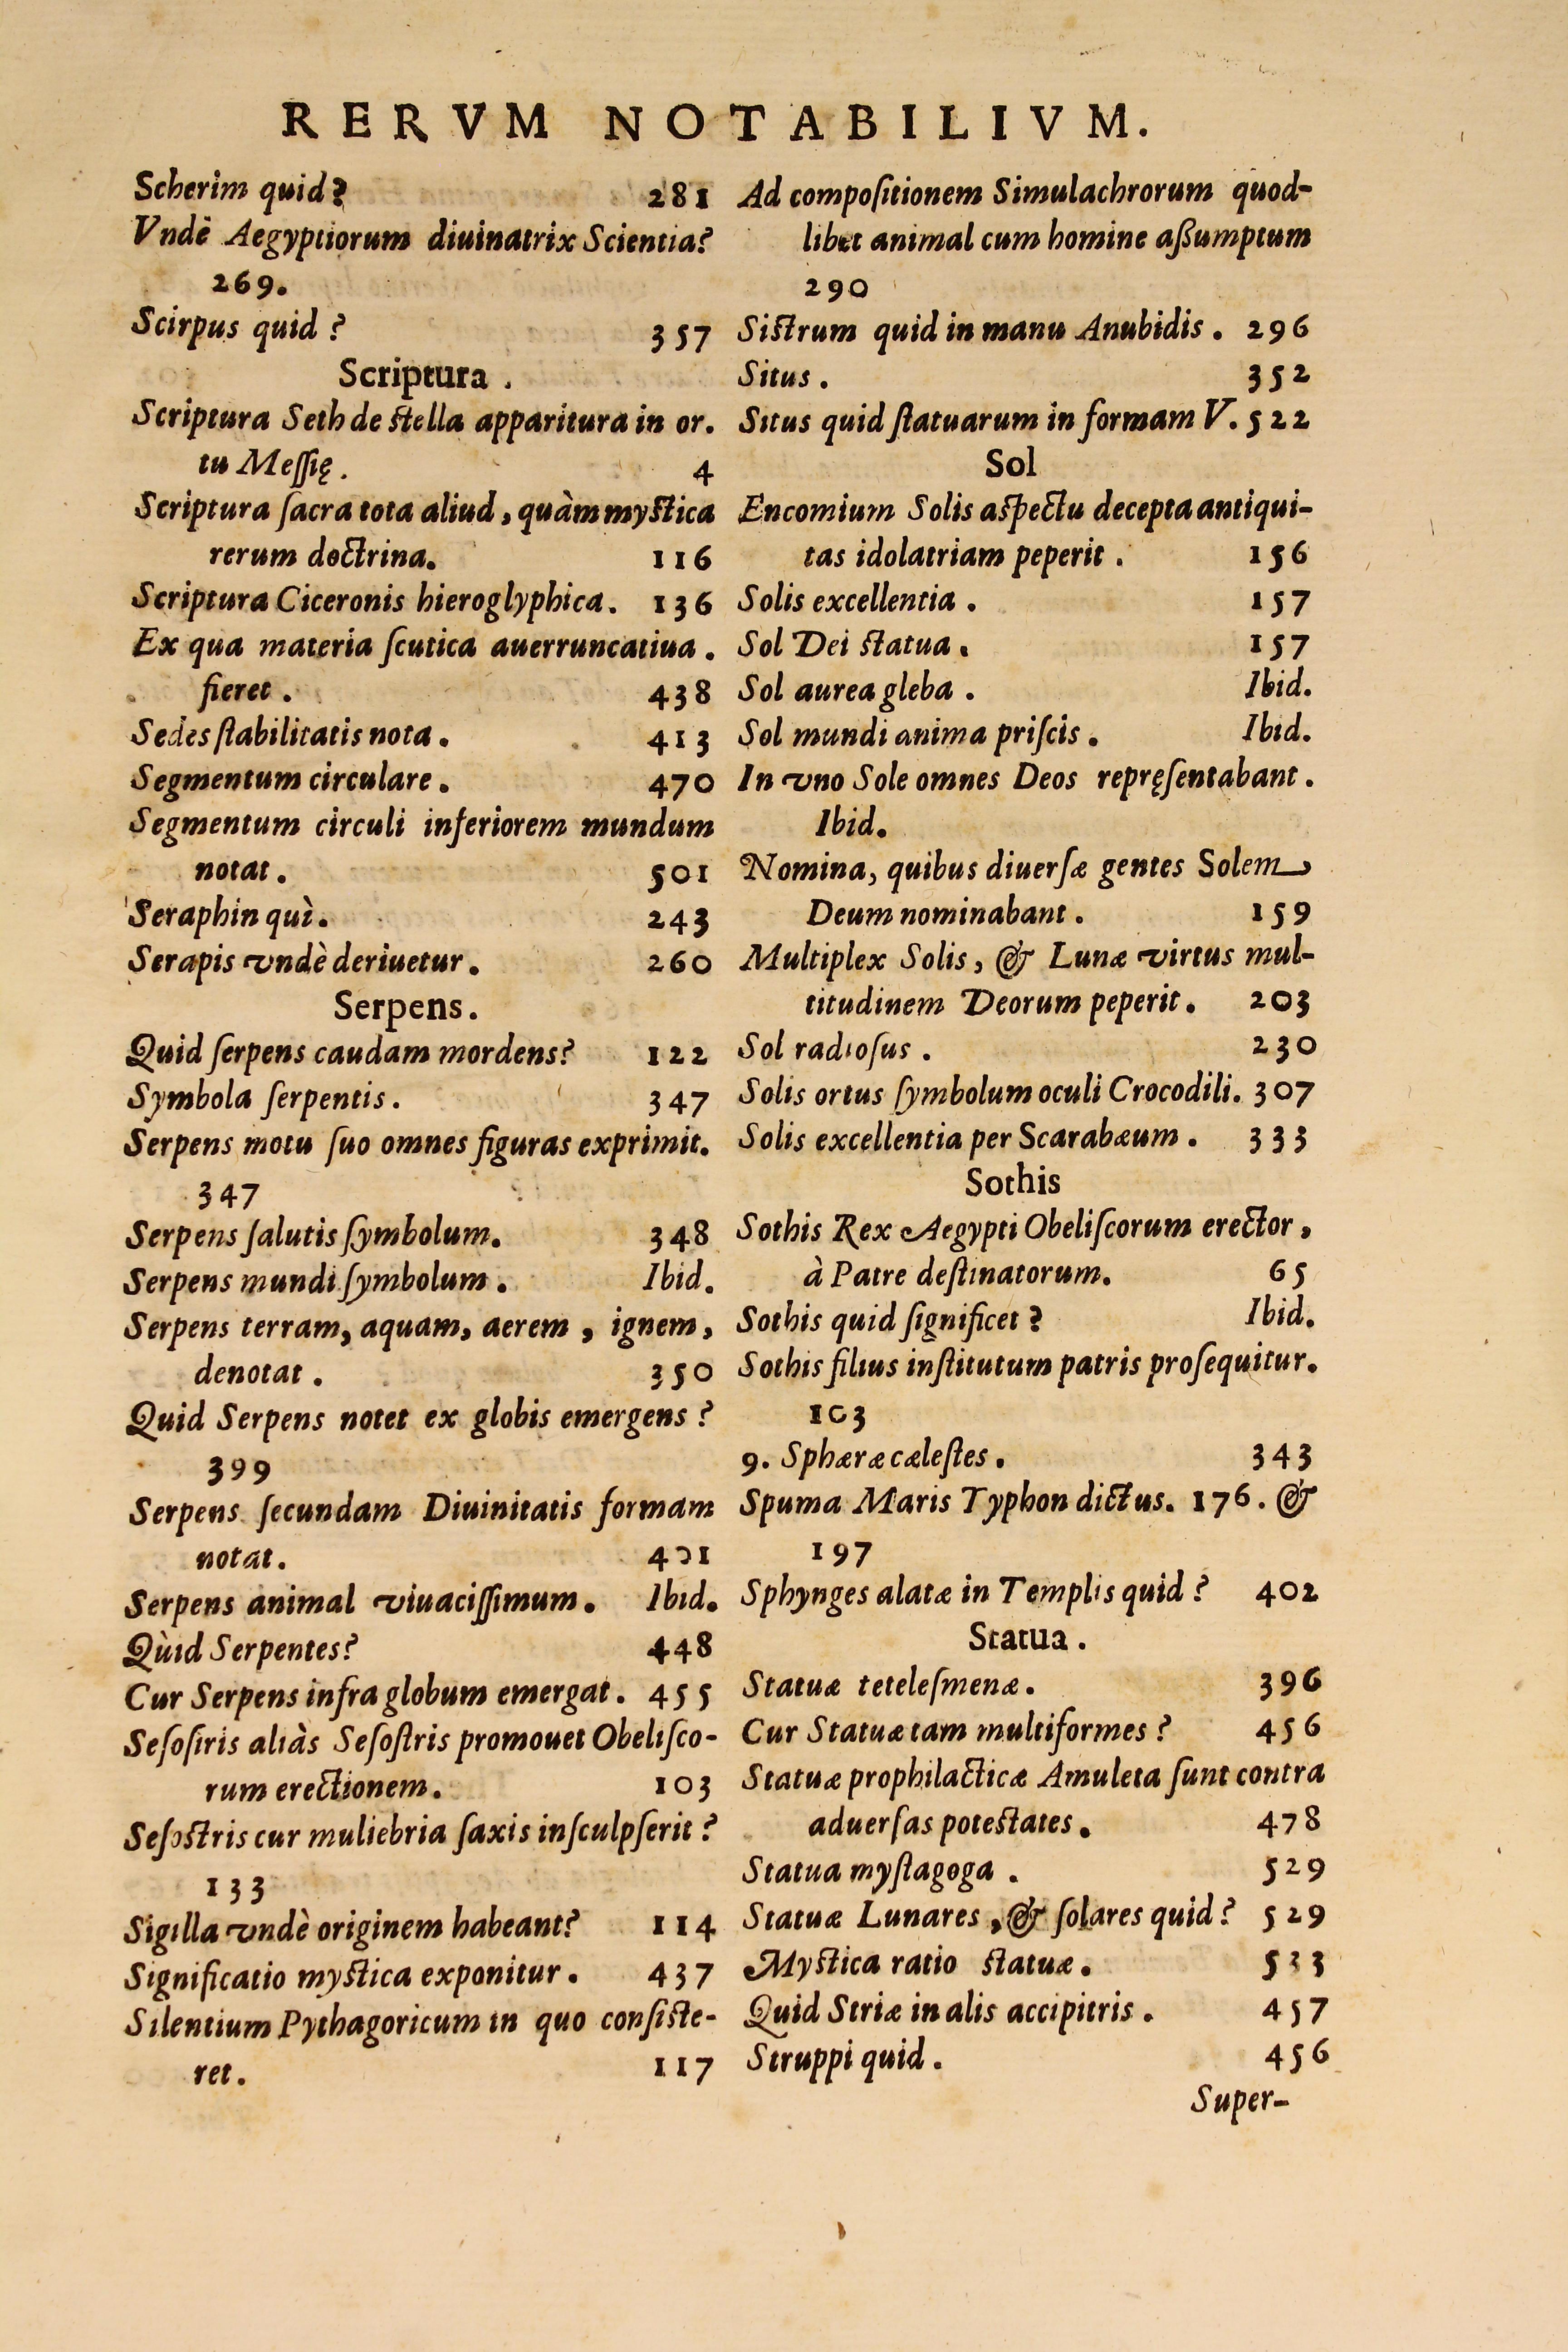 RERVM NOTABILIVM.
Scherim quid? 281
Vndè Aegyptiorum diuinatrix Scientia?
269.
Scirpus quid ? 357
Scriptura .
Scriptura Seth de ſtella apparitura in or.
tu Meſſię. 4
Scriptura ſacra tota aliud , quàm myſtica
rerum doctrina. 116
Scriptura Ciceronis hieroglyphica. 136
Ex qua materia ſcutica auerruncatiua .
fieret . 438
Sedes ſtabilitatis nota . 413
Segmentum circulare . 470
Segmentum circuli inferiorem mundum
notat . 501
Seraphin quì. 243
Serapis vndè deriuetur . 260
Serpens.
Quid ſerpens caudam mordens? 122
Symbola ſerpentis . 347
Serpens motu ſuo omnes figuras exprimit.
347
Serpens ſalutis ſymbolum. 348
Serpens mundi ſymbolum . Ibid.
Serpens terram, aquam, aerem , ignem,
denotat . 350
Quid Serpens notet ex globis emergens ?
399
Serpens ſecundam Diuinitatis formam
notat. 401
Serpens animal viuaciſſimum. Ibid.
Qùid Serpentes? 448
Cur Serpens infra globum emergat . 455
Seſoſiris aliàs Seſoſtris promouet Obeliſco-
rum erectionem. 103
Seſoſtris cur muliebria ſaxis inſculpſerit ?
133
Sigilla vndè originem habeant? 114
Significatio myſtica exponitur . 437
Silentium Pythagoricum in quo conſiſte-
ret. 117
Ad compoſitionem Simulachrorum quod-
libet animal cum homine aßumptum
290
Siſtrum quid in manu Anubidis . 296
Situs . 352
Situs quid ſtatuarum in formam V. 522
Sol
Encomium Solis aſpectu decepta antiqui-
tas idolatriam peperit . 156
Solis excellentia . 157
Sol Dei ſtatua . 157
Sol aurea gleba . Ibid.
Sol mundi anima priſcis . Ibid.
In vno Sole omnes Deos repręſentabant .
Ibid.
Nomina, quibus diuerſæ gentes Solem
Deum nominabant . 159
Multiplex Solis , & Lunæ virtus mul-
titudinem Deorum peperit . 203
Sol radioſus . 230
Solis ortus ſymbolum oculi Crocodili. 307
Solis excellentia per Scarabæum . 333
Sothis
Sothis Rex Aegypti Obeliſcorum erector ,
à Patre deſtinatorum. 65
Sothis quid ſignificet ? Ibid.
Sothis filius inſtitutum patris proſequitur.
103
9. Sphæræ cæleſtes . 343
Spuma Maris Typhon dictus. 176. &
197
Sphynges alatæ in Templis quid ? 402
Statua .
Statuæ teteleſmenæ . 396
Cur Statuæ tam multiformes ? 456
Statuæ prophilacticæ Amuleta ſunt contra
aduerſas poteſtates . 478
Statua myſtagoga . 529
Statuæ Lunares , & ſolares quid ? 529
Myſtica ratio ſtatuæ . 533
Quid Striæ in alis accipitris . 457
Struppi quid . 456
Super-